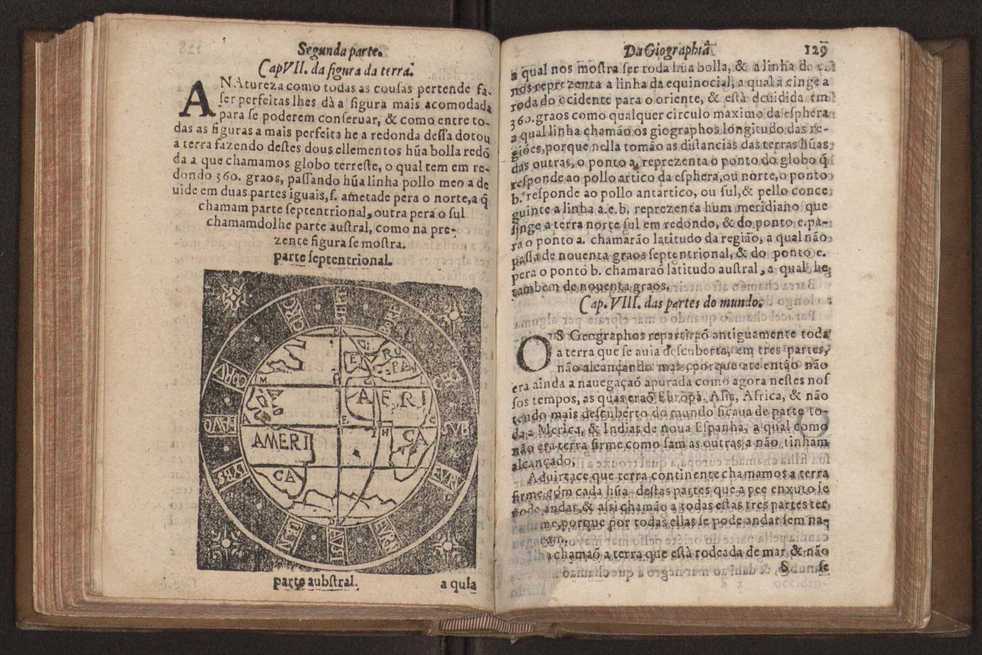 Segunda parte.
Cap VII. da figura da terra.
A NAtureza como todas as cousas pertende fa-
ser perfeitas lhes dà a figura mais acomodada
para se poderem conseruar, & como entre to-
das as figuras a mais perfeita he a redonda dessa dotou
a terra fazendo destes dous ellementos hũa bolla redõ
da a que chamamos globo terreste, o qual tem em re-
dondo 360. graos, passando hũa linha pollo meo a de
uide em duas partes iguais, s. ametade pera o norte, a q̃
chamam parte septentrional, outra pera o sul
chamamdolhe parte austral, como na pre-
zente figura se mostra.
parte septentrional.
EUROPA
AFRICA
AMERICA
parte aubstral.
a qula
Da Giographia
129
a qual nos mostra ser toda hũa bolla, & a linha
nos reprezenta a linha da equinocial, a qual a cinge a
roda do ocidente para o oriente, & està deuidida em
360. graos como qualquer circulo maximo da esphera
a qual linha chamão os giographos longitudo das re-
giões, porque nella tomão as distancias das terras hũas
das outras, o ponto a, reprezenta o ponto do globo q̃
responde ao pollo artico da esphera, ou norte, o ponto
b. responde ao pollo antártico, ou sul, & pello conce
guinte a linha a.e.b. reprezenta hum meridiano que
singe a terra norte sul em redondo, & do ponto e. pa-
ra o ponto a. chamarão latitudo da região, a qual não
passa de nouenta graos septentrional, & do ponto e.
pera o ponto b. chamaraõ latitudo austral, a qual he
tambem de nouenta graos.
Cap. VIII. das partes do mundo.
OS Geographos repartiraõ antiguamente toda
a terra que se auia descuberto, em tres partes,
não alcançando mais, porque ate então não
era ainda a nauegaçaõ apurada como agora nestes nos
sos tempos, as quas eraõ Europa, Asia, Africa, & não
tendo mais descuberto do mundo ficaua de parte to-
da a Merica, & Indias de noua Espanha, a qual como
não era terra firme como sam as outras, a não tinham
alcançado.
Aduirtace que terra continente chamamos a terra
firme com cada hũa destas partes que a pee enxuto se
pode andar, & alsi chamão a todas estas tres partes ter
me, porque por todas ellas se pode andar sem na-
chamaõ a terra que està rodeada de mar, & não
S se